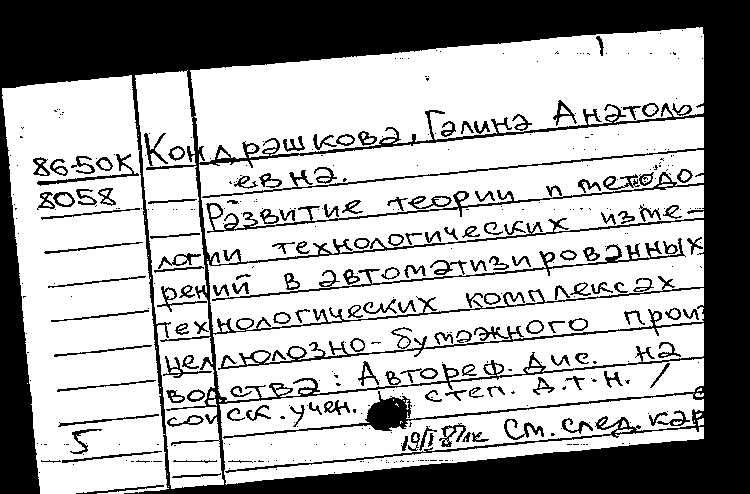 86-50К
8058
Кондрашкова, Галина Анатоль-
евна.
Развитие теории и методо-
логии технологических изме-
рений в автоматизированных
технологических комплексах
целлюлозно-бумажного произ
водства: Автореф. дис. на
соиск. учен. степ. д.т.н. /
5
См. след. кар